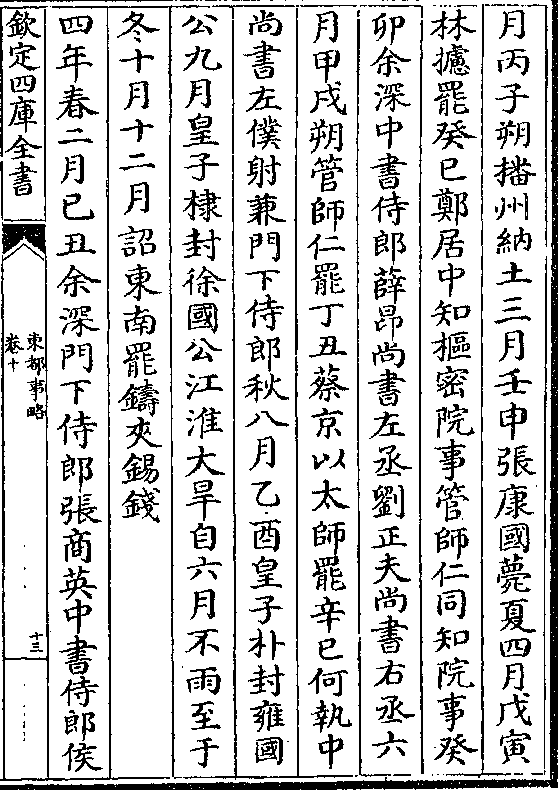 月丙子朔播州納土三月壬申張康國薨夏四月戊寅
林攄罷癸巳鄭居中知樞密院事管師仁同知院事癸
卯余深中書侍郎薛昂尚書左丞劉正夫尚書右丞六
月甲戌朔管師仁罷丁丑蔡京以太師罷辛巳何執中
尚書左僕射兼門下侍郎秋八月乙酉皇子朴封雍國
公九月皇子棣封徐國公江淮大旱自六月不雨至于
冬十月十二月詔東南罷鑄夾錫錢
四年春二月己丑余深門下侍郎張商英中書侍郎侯
欽定四庫全書
東都事略
卷十
十三